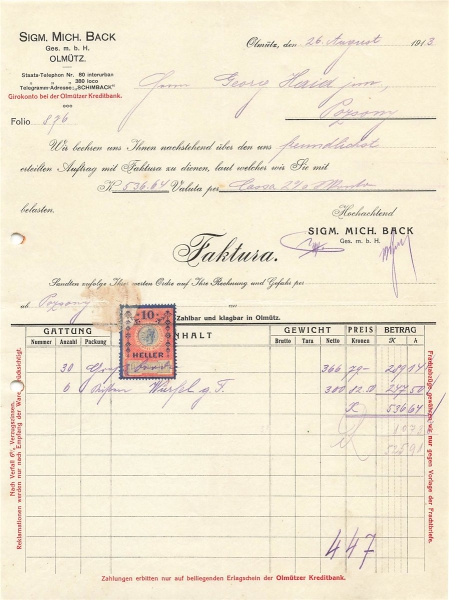 SIGM. MICH. BACK
Ges. m. b. H.
OLMÜTZ.
Staats-Telephon Nr. 80 interurban
„ „ 380 loco
Telegramm-Adresse: „SCHIMBACK"
Girokonto bei der Olmützer Kreditbank.
Folio 896
Olmütz, den 26. August 1913
Herrn Georg Haid jun.,
Pozsony
Wir beehren uns Ihnen nachstehend über den uns freundlichst
erteilten Auftrag mit Faktura zu dienen, laut welcher wir Sie mit
K 536.64 Valuta per Cassa 2%
belasten.
Hochachtend
SIGM. MICH. BACK
Ges. m. b. H.
Faktura.
Sandten zufolge Ihrer werten Ordre auf Ihre Rechnung und Gefahr per
ab Pozsony
Zahlbar und klagbar in Olmütz.
GATTUNG INHALT GEWICHT PREIS BETRAG
Nummer Anzahl Packung Brutto Tara Netto Kronen K h
10
HELLER
30 366 79- 289 14
6 Kisten Würfel g. T. 300 82.50 247 50
K 536 64
10 73
525 91
447
Nach Verfall 6% Verzugszinsen.
Reklamationen werden nur nach Empfang der Ware berücksichtigt.
Frachtbezüge gewähren wir nur gegen Vorlage der Frachtbriefe.
Zahlungen erbitten nur auf beiliegenden Erlagschein der Olmützer Kreditbank.